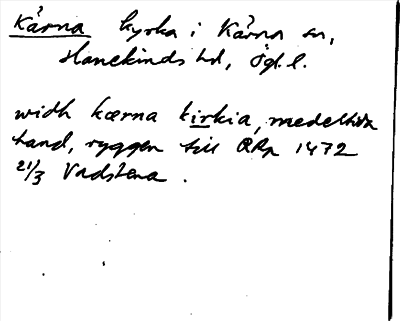 Kärna kyrka i Kärna sn,
Hanekinds hd, Ögl.
widh kærna kirkia, medeltida
hand, ryggen till RAp 1472
21/3 Vadstena.